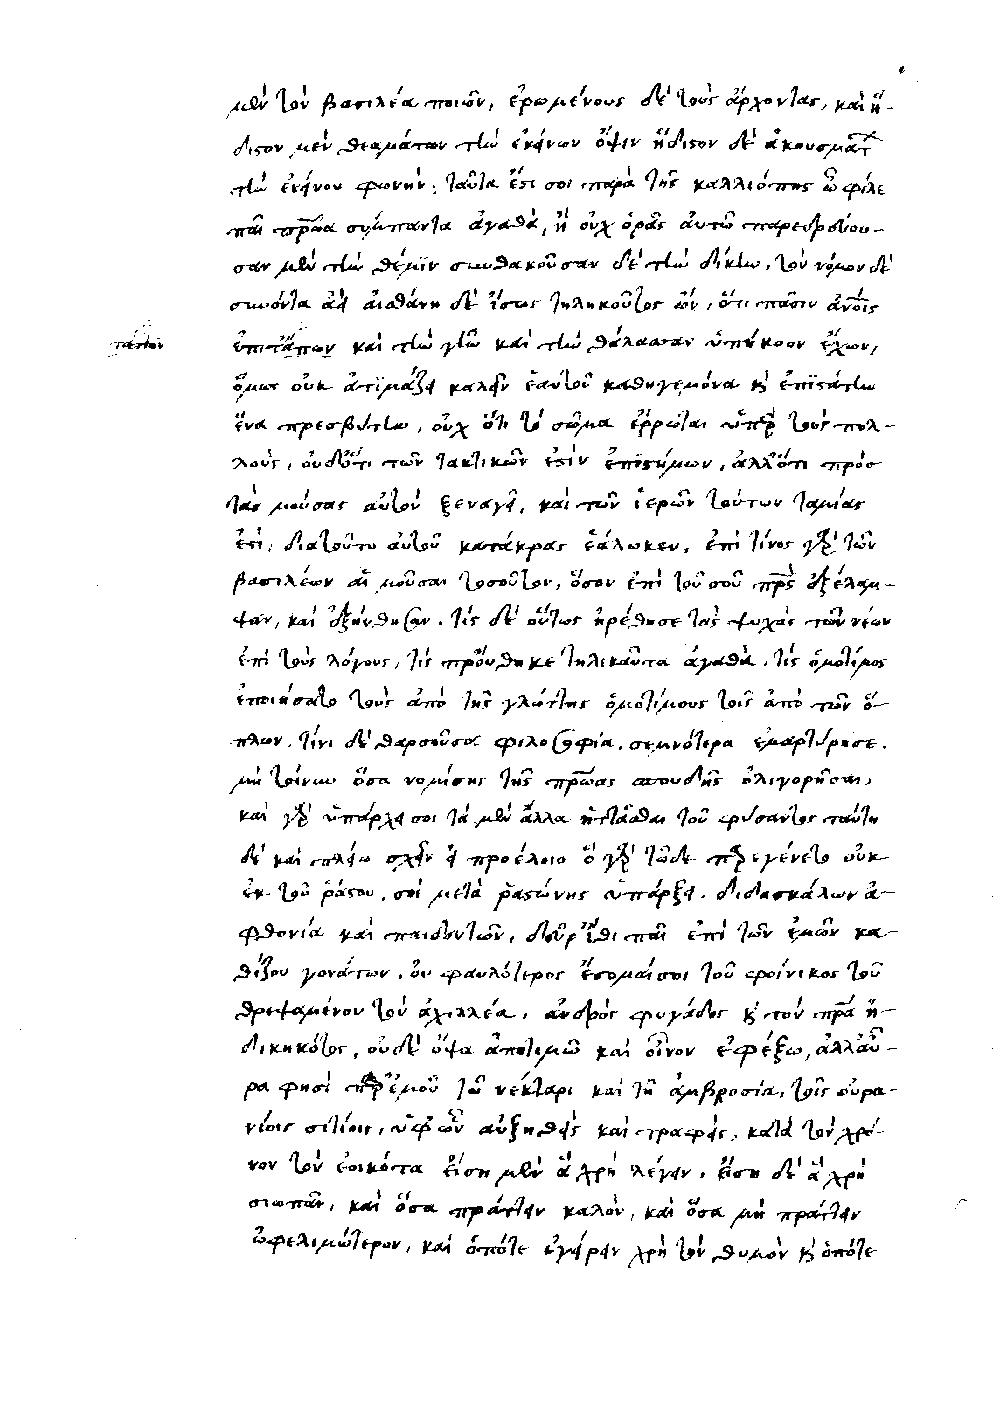 μὲν τὸν βασιλέα ποιῶν, ἐρωμένους δὲ τοὺς ἄρχοντας, καὶ ἥ-
διστον μὲν θεαμάτων τὴν ἐκείνων ὄψιν ἥδιστον δὲ ἀκουσμάτ
τὴν ἐκείνου φωνὴν, ταῦτα ἔστι σοι παρὰ τῆς καλλιόπης ὦ φίλε
παῖ πρῶτα σύμπαντα ἀγαθὰ, ἢ οὐχ ὁρᾶς αὐτῶ παρεδρεύου-
σαν μὲν τὴν θέμϊν συνθακοῦσαν δὲ τὴν δίκην, τὸν νόμον δὲ
συνόντα ἀεὶ αἰσθάνη δὲ ἴσως τηλικοῦτος ὢν, ὅτι πᾶσιν ἀνοις
ἐπιτάττων καὶ τὴν γῆν καὶ τὴν θάλασσαν ὑπήκοον ἔχων,
ὅμως οὐκ ἀτϊμάζει καλεῖν ἑαυτοῦ καθηγεμόνα καὶ ἐπϊστάτην
ἕνα πρεσβύτην, οὐχ ὅτι τὸ σῶμα ἔρρωται ὑπὲρ τοὺς πολ-
λοὺς, οὐδ' ὅτι τῶν τακτικῶν ἐστὶν ἐπιστήμων, ἀλλ' ὅτι πρὸς
τὰς μούσας αὐτὸν ξεναγεῖ, καὶ τῶν ἱερῶν τούτων ταμίας
ἐστὶ, διατοῦτο αὐτοῦ κατάκρας ἑάλωκεν, ἐπὶ τίνος γὰρ τῶν
βασιλέων αἱ μοῦσαι τοσοῦτον, ὅσον ἐπὶ τοῦ σοῦ πρς ἐξέλαμ-
ψαν, καὶ ἐξήνθησαν. τίς δὲ οὕτως ἠρέθησε τὰς ψυχὰς τῶν νέων
ἐπὶ τοὺς λόγους, τίς προὔθηκε τηλικαῦτα ἀγαθὰ, τίς ὁμοτίμος
ἐποιήσατο τοὺς ἀπὸ τῆς γλώττης ὁμοτίμους τοῖς ἀπὸ τῶν ὅ-
πλων. τίνι δὲ θαρσοῦσα φιλοσοφία. σεμνότερα ἐμαρτύρησε.
μὴ τοίνυν ὅσα νομίσης τῆς πρώας σπουδῆς ὀλιγορῆσαι,
καὶ γὰρ ὑπάρχει σοι τὰ μὲν ἄλλα ἡττᾶσθαι τοῦ φύσαντος ταύτη
δὲ καὶ πλέω σχεῖν εἰ προέλοιο ὃ γὰρ τῶδε παρεγένετο οὐκ
ἐκ τοῦ ῥάστου, σοὶ μετὰ ῥαστώνης ὑπάρξει. διδασκάλων ἀ-
φθονία καὶ παιδευτῶν, δεῦρ' ἴθι παῖ ἐπὶ τῶν ἐμῶν κα-
θίζου γονάτων, οὐ φαυλότερος ἔσομαίσοι τοῦ φοίνικος τοῦ
θρεψαμένου τὸν ἀχιλλέα, ἀνδρὸς φυγάδος καὶ τὸν πρα ἠ-
δικηκότος, οὐδὲ ὄψα ἀποτιμῶ καὶ οἶνον ἐφέξω, ἀλλ' αὔ-
ρα φησὶ παρ' ἐμοῦ τῶ νέκταρι καὶ τῆ ἀμβροσία, τοῖς οὐρα-
νίοις σιτίοις, ὑφ' ὧν αὐξηθεὶς καὶ τραφεὶς, κατὰ τὸν χρό-
νον τὸν ἐοικότα εἴση μὲν ἃ χρὴ λέγειν, εἴση δὲ ἃ χρὴ
σιωπᾶν, καὶ ὅσα πράττειν καλὸν, καὶ ὅσα μὴ πράττειν
ὠφελιμώτερον, καὶ ὁπότε ἐγείρειν χρὴ τὸν θυμὸν καὶ ὁπότε